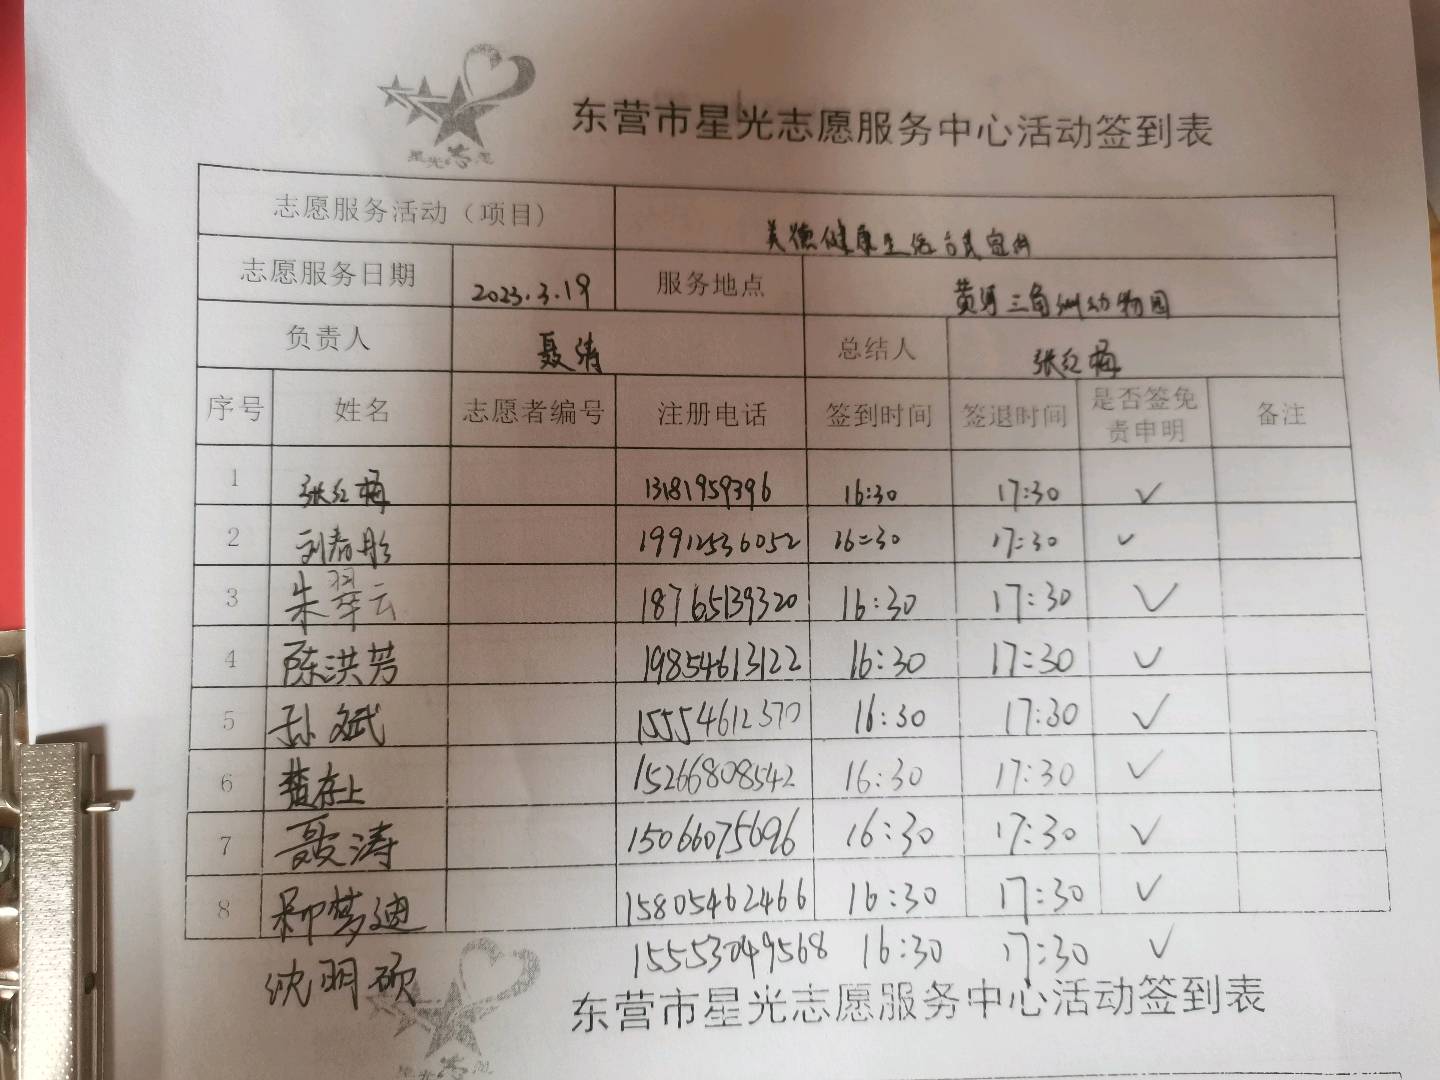 东营市星光志愿服务中心活动签到表
星光志愿
志愿服务活动（项目） 美德健康生活方式宣传
志愿服务日期 2023.3.19 服务地点 黄河三角洲动物园
负责人 聂涛 总结人 张红梅
序号 姓名 志愿者编号 注册电话 签到时间 签退时间 是否签免责申明 备注
1 张红梅 13181959396 16:30 17:30 ✓
2 刘春彤 19912536052 16:30 17:30 ✓
3 朱翠云 18765139320 16:30 17:30 ✓
4 陈洪芳 19854613122 16:30 17:30 ✓
5 孙斌 15554612370 16:30 17:30 ✓
6 楚存上 15266808542 16:30 17:30 ✓
7 聂涛 15066075696 16:30 17:30 ✓
8 柳梦迪 15805462466 16:30 17:30 ✓
沈明硕 15553049568 16:30 17:30 ✓
东营市星光志愿服务中心活动签到表
星光志愿